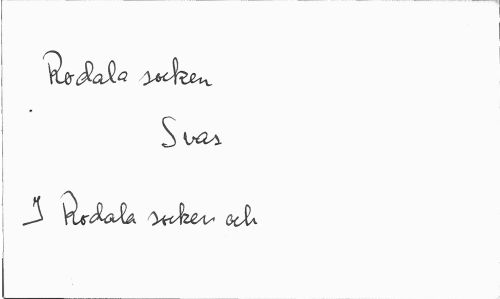 Rodala socken
Svas
I Rodala socken och